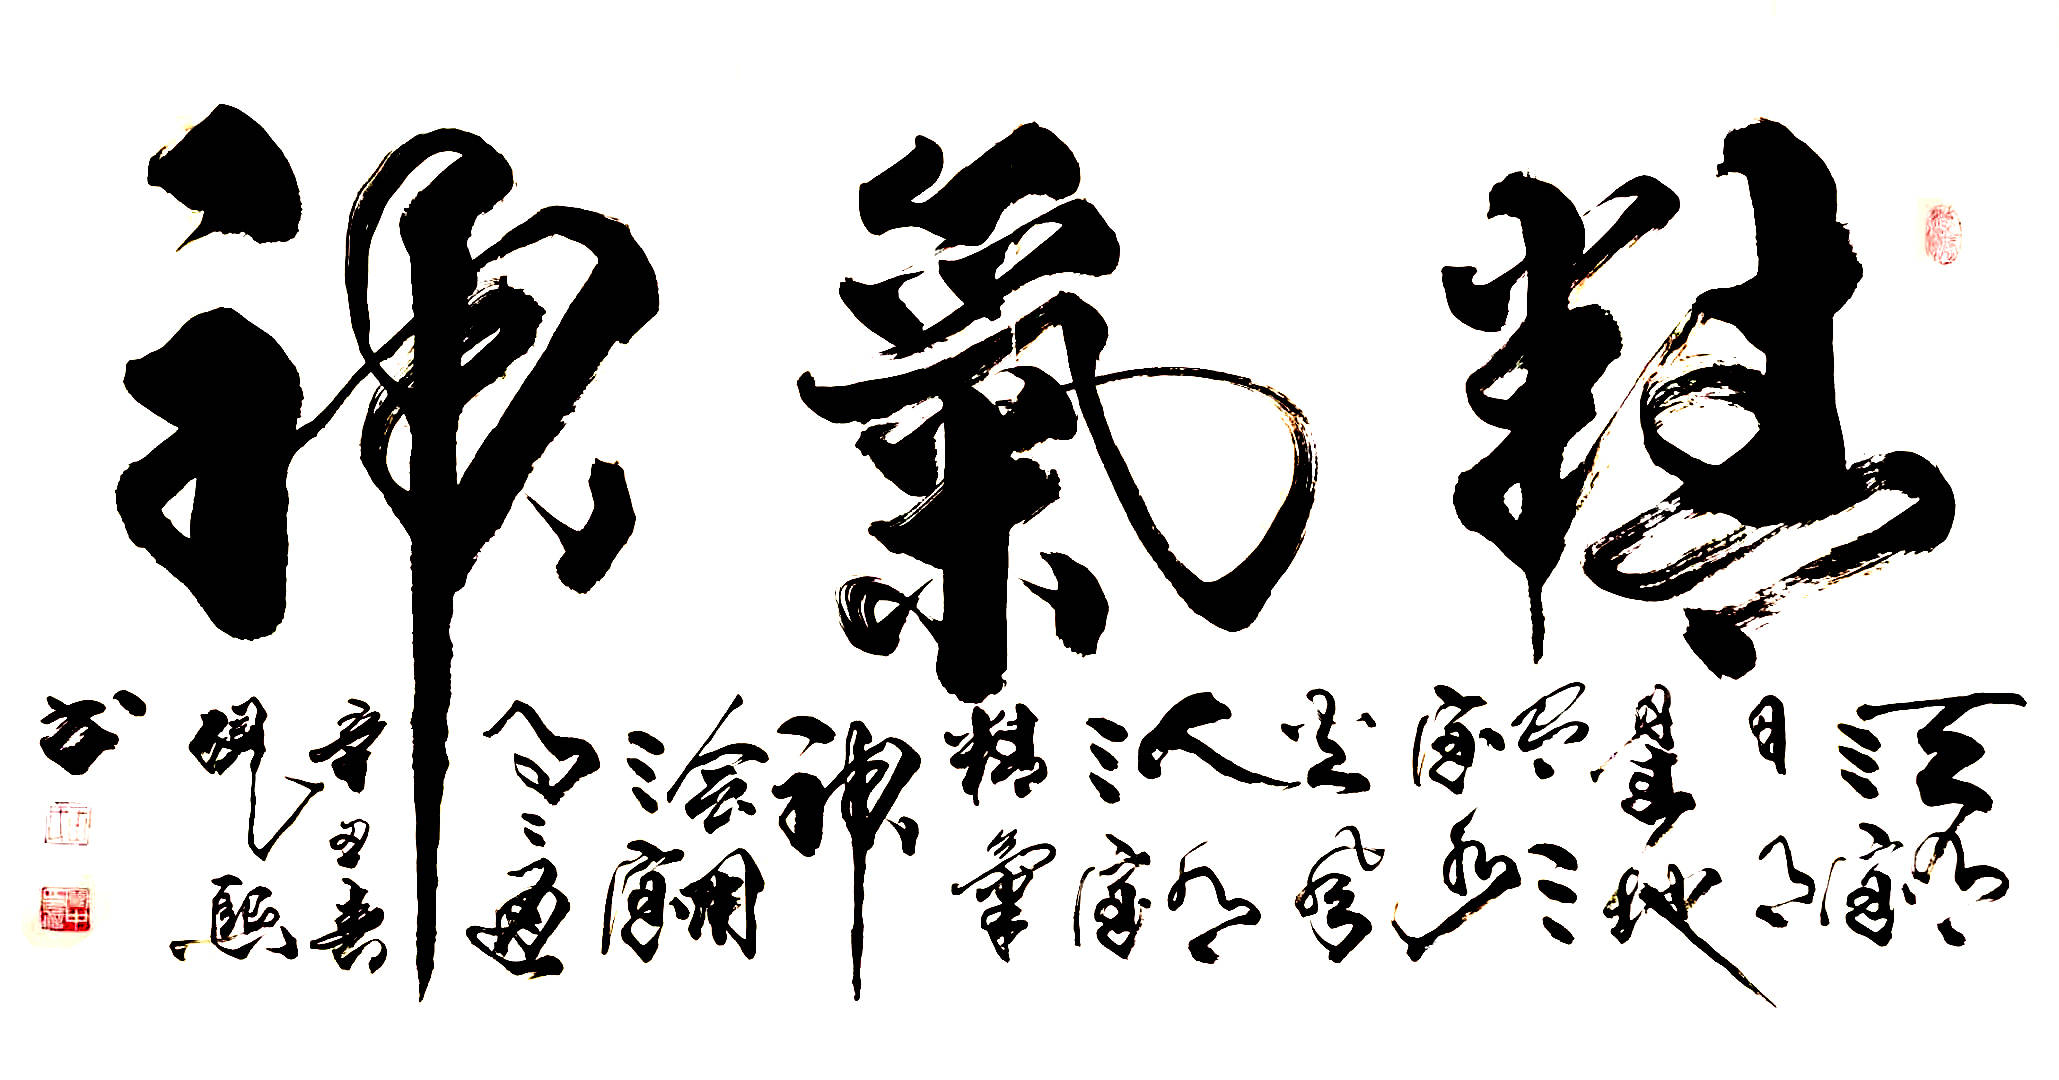 精氣神
天有
三寶
日月
星地
有三
寶水
火風
人有
三寶
精氣
神
會用
三寶
通
辛丑春
書